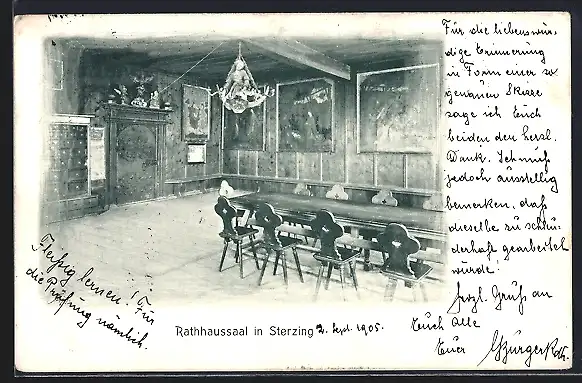 Für die liebenswür-
dige Erinnerung
in Form einer so
genauen Skizze
sage ich Euch
beiden den herzl.
Dank. Ich muß
jedoch ausstellig
bemerken, daß
dieselbe zu schleu-
derhaft gearbeitet
wurde!
Herzl. Gruß an
Euch Alle
Euer
Fleißig lernen! Für
die Prüfung nämlich.
Rathhaussaal in Sterzing 3. Sept. 1905.